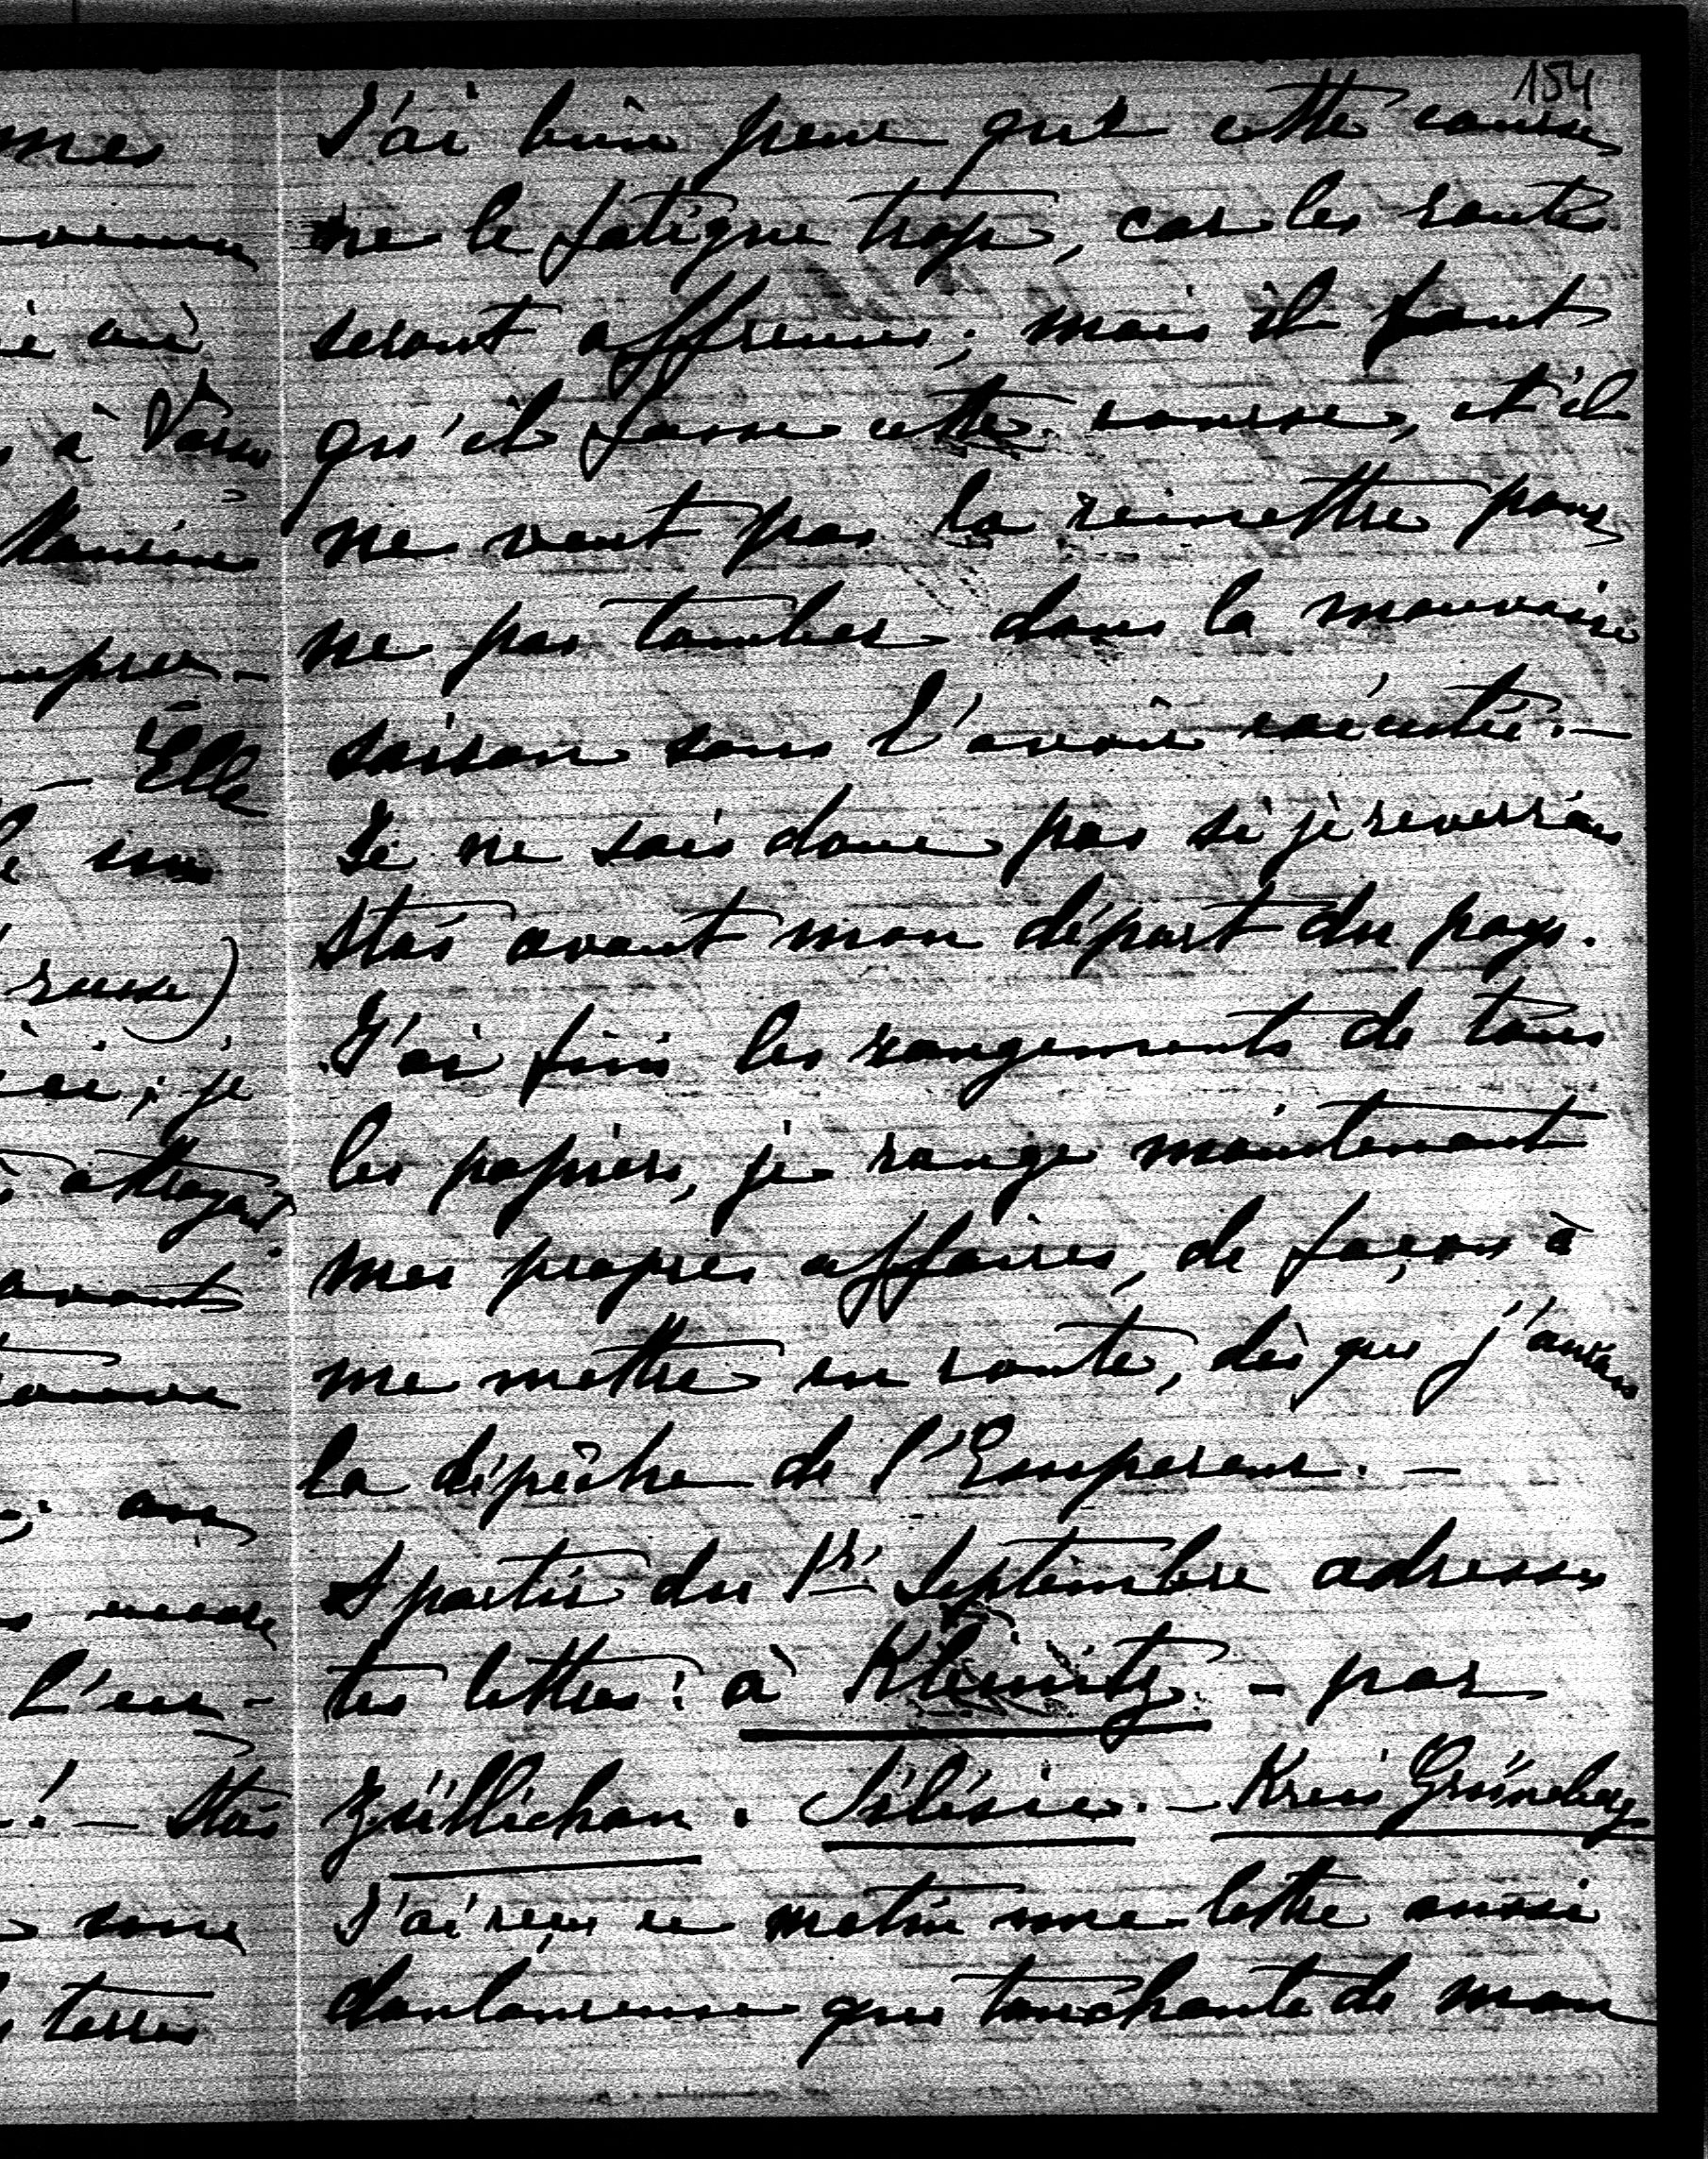 154
J'ai bien peur que cette course
ne le fatigue trop, car les routes
seront affreuses; mais il faut
qu'il fasse cette course, et il
ne veut pas la remettre pour
ne pas tomber dans la mauvaise
saison sans l'avoir exécutée. —
Je ne sais donc pas si je reverrai
Stas avant mon départ du pays.
J'ai fini les rangements de tous
les papiers, je range maintenant
mes propres affaires, de façon à
me mettre en route, dès que j'aurai
la dépêche de l'Empereur. —
A partir du 1r. Septembre adresses
tes lettres: à Kleinitz - par
Züllichau. Silésie. — Kreis Grüneberg
J'ai reçu ce matin une lettre aussi
douloureuse que touchante de mon
mes
à
— Elle
russe)
; je
avant
l'en-
! — Stas
terres